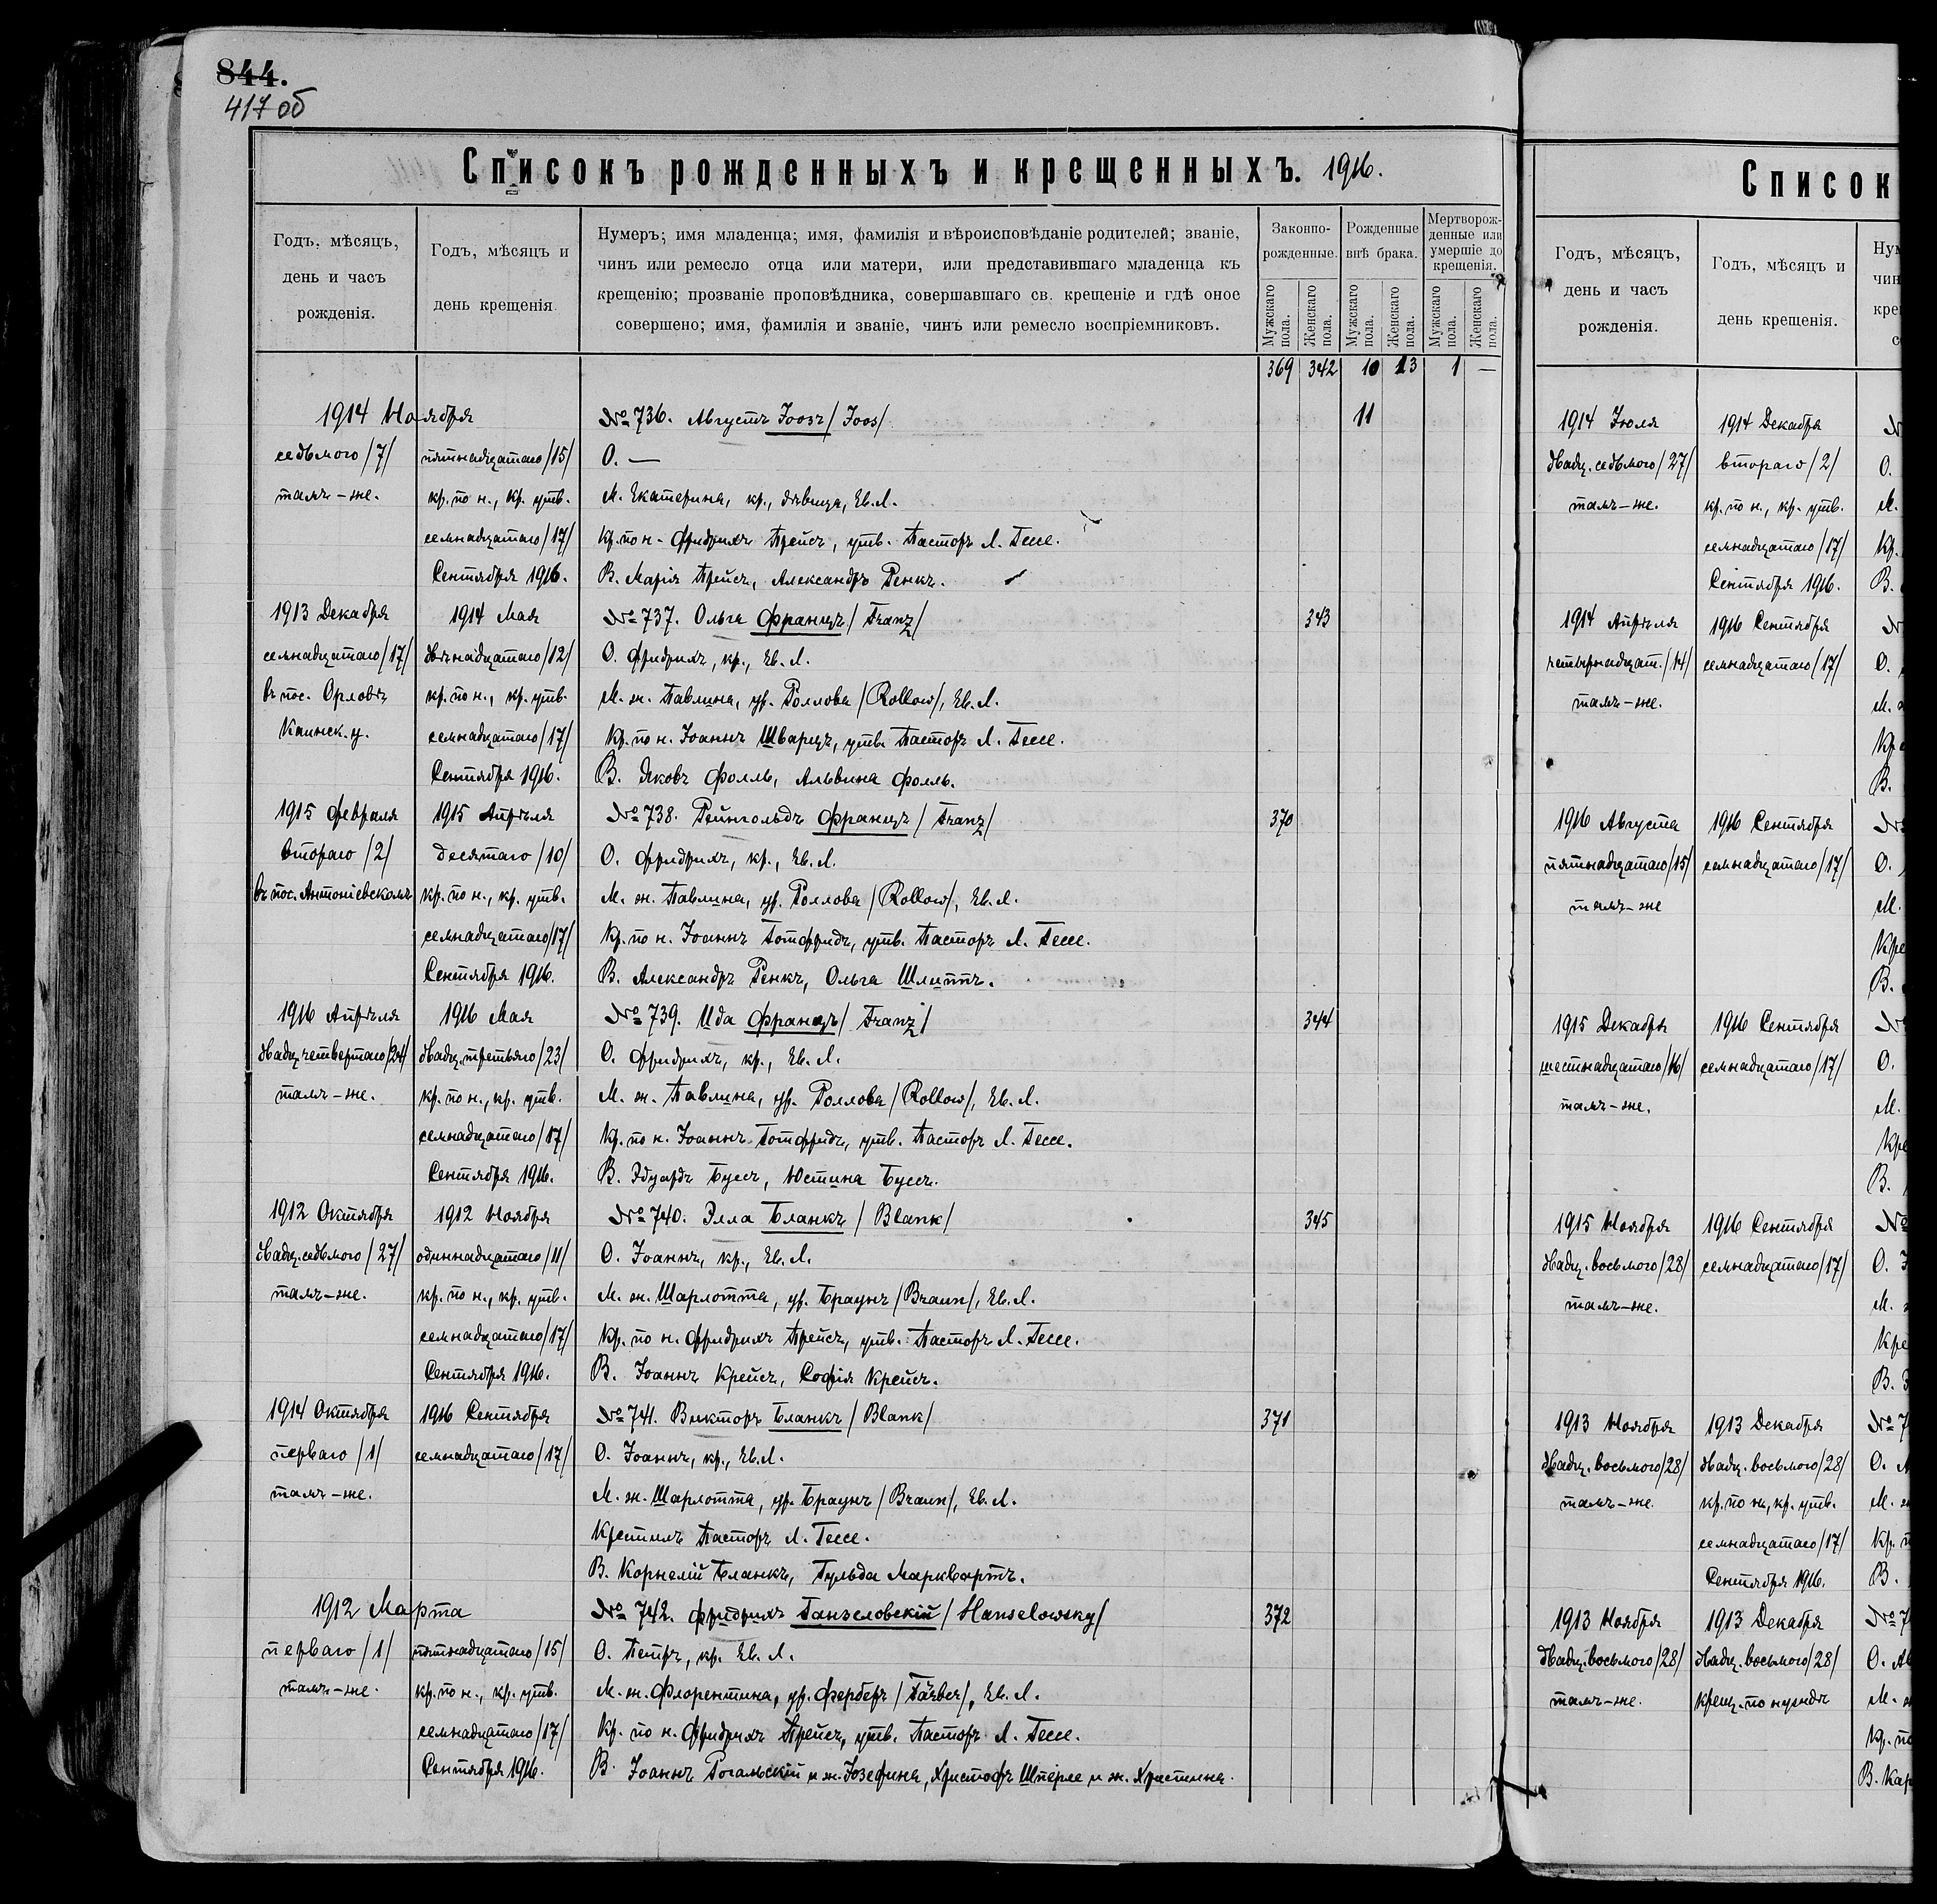 844.
417 об
Списокъ рожденныхъ и крещенныхъ. 1916.
Годъ, мѣсяцъ, день и часъ рожденія.
Годъ, мѣсяцъ и день крещенія.
Нумеръ; имя младенца; имя, фамилія и вѣроисповѣданіе родителей; званіе,
чинъ или ремесло отца или матери, или представившаго младенца къ
крещенію; прозваніе проповѣдника, совершавшаго св. крещеніе и гдѣ оное
совершено; имя, фамилія и званіе, чинъ или ремесло воспріемниковъ.
Законно-рожденные.
Рожденные внѣ брака.
Мертворож-денные или умершіе до крещенія.
Мужскаго пола. Женскаго пола. Мужскаго пола. Женскаго пола. Мужскаго пола. Женскаго пола.
369 342 10 13 1 —
1914 Ноября № 736. Августъ Іоозъ /Joos/ 11
седьмого /7/ пятнадцатаго /15/ О. —
тамъ-же. кр. по н., кр. утв. М. Екатерина, кр., дѣвица, Ев. Л.
семнадцатаго /17/ Кр. по н. Фридрихъ Прейсъ, утв. Пасторъ Л. Гессе.
Сентября 1916. В. Марія Прейсъ, Александръ Ренкъ.
1913 Декабря 1914 Мая № 737. Ольга Францъ /Franz/ 343
семнадцатаго /17/ двѣнадцатаго /12/ О. Фридрихъ, кр., Ев. Л.
въ пос. Орловъ кр. по н., кр. утв. М. ж. Павлина, ур. Роллова /Rollow/, Ев. Л.
Каинск. у. семнадцатаго /17/ Кр. по н. Іоаннъ Шварцъ, утв. Пасторъ Л. Гессе.
Сентября 1916. В. Яковъ Фолль, Альвина Фолль.
1915 Февраля 1915 Апрѣля № 738. Рейнгольдъ Францъ /Franz/ 370
второго /2/ десятаго /10/ О. Фридрихъ, кр., Ев. Л.
въ пос. Антоніевскомъ кр. по н., кр. утв. М. ж. Павлина, ур. Роллова /Rollow/, Ев. Л.
семнадцатаго /17/ Кр. по н. Іоаннъ Готфридъ, утв. Пасторъ Л. Гессе.
Сентября 1916. В. Александръ Ренкъ, Ольга Шлиттъ.
1916 Апрѣля 1916 Мая № 739. Ида Францъ /Franz/ 344
двадц. четвертаго /24/ двадц. третьяго /23/ О. Фридрихъ, кр., Ев. Л.
тамъ-же. кр. по н., кр. утв. М. ж. Павлина, ур. Роллова /Rollow/, Ев. Л.
семнадцатаго /17/ Кр. по н. Іоаннъ Готфридъ, утв. Пасторъ Л. Гессе.
Сентября 1916. В. Эдуардъ Буссъ, Юстина Буссъ.
1912 Октября 1912 Ноября № 740. Элла Бланкъ /Blank/ 345
двадц. седьмого /27/ одиннадцатаго /11/ О. Іоаннъ, кр., Ев. Л.
тамъ-же. кр. по н., кр. утв. М. ж. Шарлотта, ур. Браунъ /Braun/, Ев. Л.
семнадцатаго /17/ Кр. по н. Фридрихъ Прейсъ, утв. Пасторъ Л. Гессе.
Сентября 1916. В. Іоаннъ Крейсъ, Софія Крейсъ.
1914 Октября 1916 Сентября № 741. Викторъ Бланкъ /Blank/ 371
перваго /1/ семнадцатаго /17/ О. Іоаннъ, кр., Ев. Л.
тамъ-же. М. ж. Шарлотта, ур. Браунъ /Braun/, Ев. Л.
Крестилъ Пасторъ Л. Гессе.
В. Корнелій Бланкъ, Гульда Марквартъ.
1912 Марта № 742. Фридрихъ Ганзеловскій /Hanselowsky/ 372
перваго /1/ пятнадцатаго /15/ О. Петръ, кр. Ев. Л.
тамъ-же. кр. по н., кр. утв. М. ж. Флорентина, ур. Ферберъ /Färber/, Ев. Л.
семнадцатаго /17/ Кр. по н. Фридрихъ Прейсъ, утв. Пасторъ Л. Гессе.
Сентября 1916. В. Іоаннъ Рогальскій и ж. Іозефина, Христофъ Шперле и ж. Христина.
Список
Годъ, мѣсяцъ, день и часъ рожденія.
Годъ, мѣсяцъ и день крещенія.
1914 Іюля 1914 Декабря
двадц. седьмого /27/ второго /2/ О.
тамъ-же. кр. по н., кр. утв. М.
семнадцатаго /17/ Кр.
Сентября 1916. В.
1914 Апрѣля 1916 Сентября
четырнадцат. /14/ семнадцатаго /17/ О.
тамъ-же. М.
Кр
В.
1916 Августа 1916 Сентября
пятнадцатаго /15/ семнадцатаго /17/ О.
тамъ-же М.
Кре
В.
1915 Декабря 1916 Сентября
шестнадцатаго /16/ семнадцатаго /17/ О.
тамъ-же. М.
Кре
В.
1915 Ноября 1916 Сентября №
двадц. восьмого /28/ семнадцатаго /17/ О.
тамъ-же. М.
Кре
В.
1913 Ноября 1913 Декабря № 7
двадц. восьмого /28/ двадц. восьмого /28/ О.
тамъ-же. кр. по н., кр. утв. М.
семнадцатаго /17/ Кр.
Сентября 1916. В.
1913 Ноября 1913 Декабря № 7
двадц. восьмого /28/ двадц. восьмого /28/ О.
тамъ-же. крещ. по нуждѣ М.
Кр. по
В. Кар